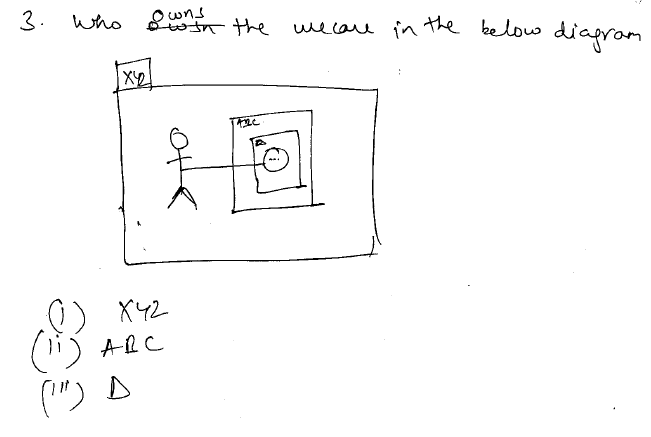 3. Who owns the usecase in the below diagram
XYZ
ABC
D
...
(i) XYZ
(ii) ABC
(iii) D